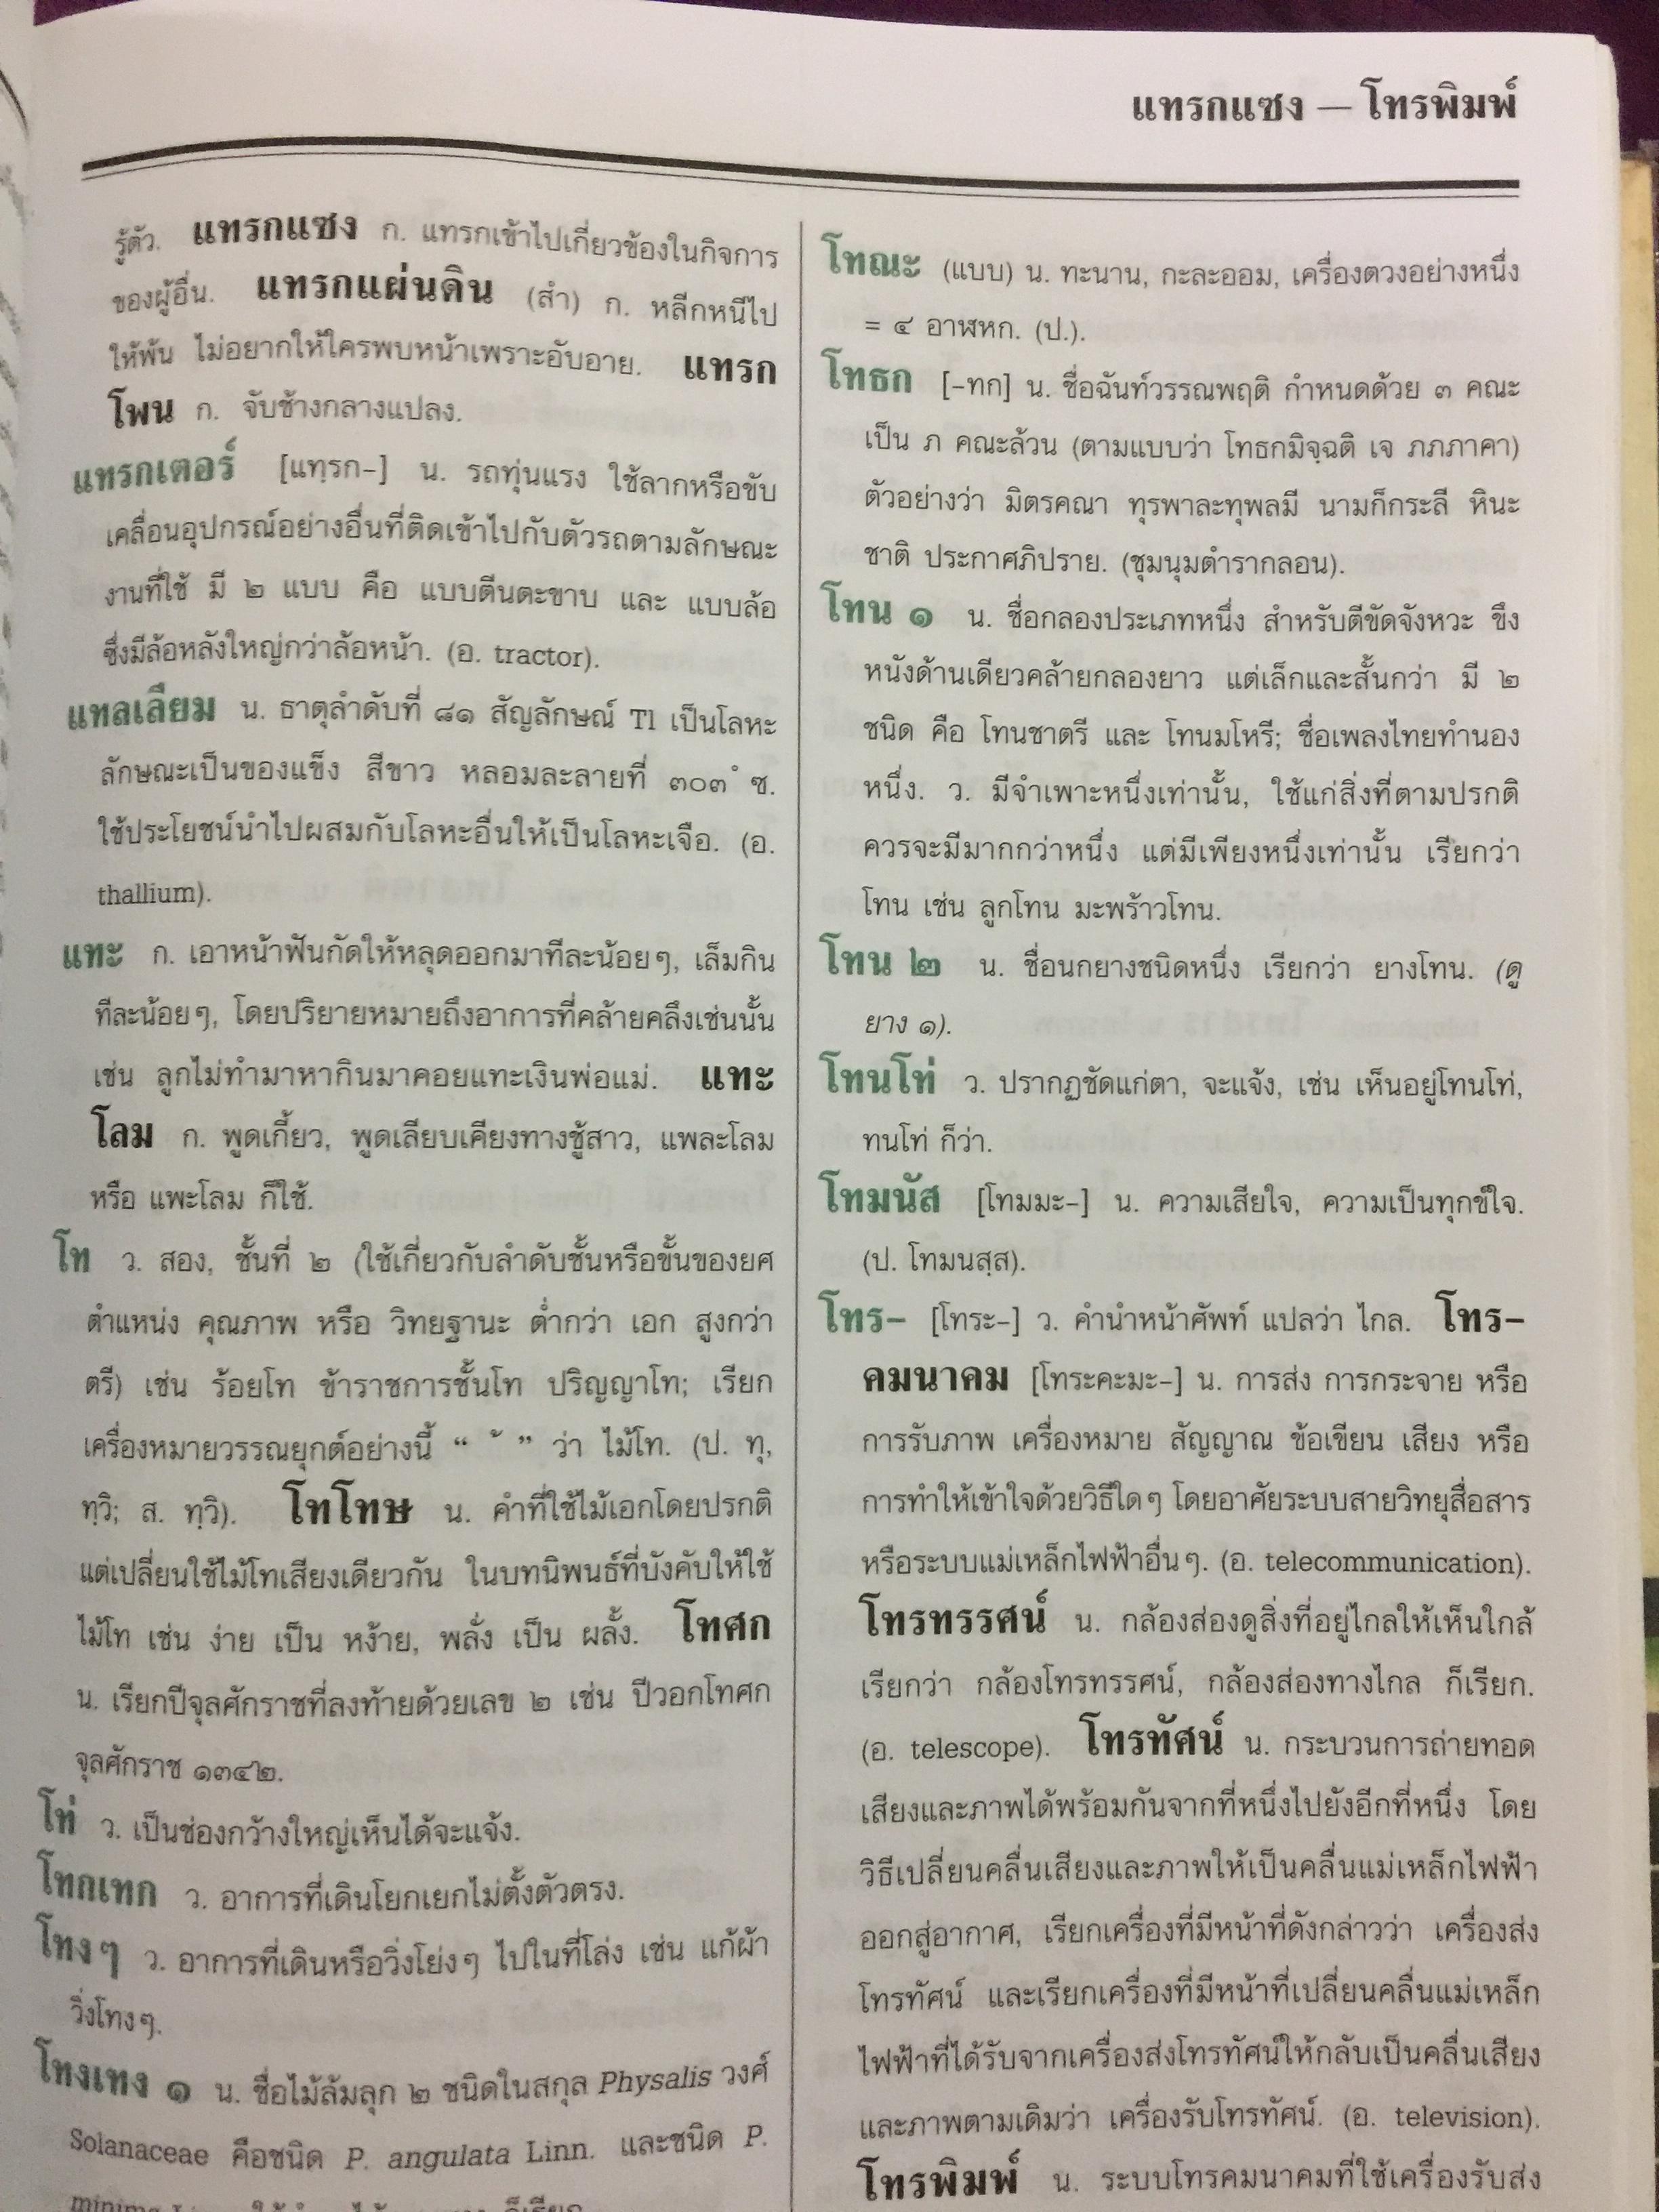 แทรกแซง — โทรพิมพ์
รู้ตัว. แทรกแซง ก. แทรกเข้าไปเกี่ยวข้องในกิจการ
ของผู้อื่น. แทรกแผ่นดิน (สำ) ก. หลีกหนีไป
ให้พ้น ไม่อยากให้ใครพบหน้าเพราะอับอาย. แทรก
โพน ก. จับช้างกลางแปลง.
แทรกเตอร์ [แทฺรก-] น. รถทุ่นแรง ใช้ลากหรือขับ
เคลื่อนอุปกรณ์อย่างอื่นที่ติดเข้าไปกับตัวรถตามลักษณะ
งานที่ใช้ มี ๒ แบบ คือ แบบตีนตะขาบ และ แบบล้อ
ซึ่งมีล้อหลังใหญ่กว่าล้อหน้า. (อ. tractor).
แทลเลียม น. ธาตุลำดับที่ ๘๑ สัญลักษณ์ Tl เป็นโลหะ
ลักษณะเป็นของแข็ง สีขาว หลอมละลายที่ ๓๐๓° ซ.
ใช้ประโยชน์นำไปผสมกับโลหะอื่นให้เป็นโลหะเจือ. (อ.
thallium).
แทะ ก. เอาหน้าฟันกัดให้หลุดออกมาทีละน้อยๆ, เล็มกิน
ทีละน้อยๆ, โดยปริยายหมายถึงอาการที่คล้ายคลึงเช่นนั้น
เช่น ลูกไม่ทำมาหากินมาคอยแทะเงินพ่อแม่. แทะ
โลม ก. พูดเกี้ยว, พูดเลียบเคียงทางชู้สาว, แพละโลม
หรือ แพะโลม ก็ใช้.
โท ว. สอง, ชั้นที่ ๒ (ใช้เกี่ยวกับลำดับชั้นหรือขั้นของยศ
ตำแหน่ง คุณภาพ หรือ วิทยฐานะ ต่ำกว่า เอก สูงกว่า
ตรี) เช่น ร้อยโท ข้าราชการชั้นโท ปริญญาโท; เรียก
เครื่องหมายวรรณยุกต์อย่างนี้ “ ้ ” ว่า ไม้โท. (ป. ทุ,
ทฺวิ; ส. ทฺวิ). โทโทษ น. คำที่ใช้ไม้เอกโดยปรกติ
แต่เปลี่ยนใช้ไม้โทเสียงเดียวกัน ในบทนิพนธ์ที่บังคับให้ใช้
ไม้โท เช่น ง่าย เป็น หง้าย, พลั่ง เป็น ผลั้ง. โทศก
น. เรียกปีจุลศักราชที่ลงท้ายด้วยเลข ๒ เช่น ปีวอกโทศก
จุลศักราช ๑๓๔๒.
โท่ ว. เป็นช่องกว้างใหญ่เห็นได้จะแจ้ง.
โทกเทก ว. อาการที่เดินโยกเยกไม่ตั้งตัวตรง.
โทงๆ ว. อาการที่เดินหรือวิ่งโย่งๆ ไปในที่โล่ง เช่น แก้ผ้า
วิ่งโทงๆ.
โทงเทง ๑ น. ชื่อไม้ล้มลุก ๒ ชนิดในสกุล Physalis วงศ์
Solanaceae คือชนิด P. angulata Linn. และชนิด P.
โทณะ (แบบ) น. ทะนาน, กะละออม, เครื่องตวงอย่างหนึ่ง
= ๔ อาฬหก. (ป.).
โทธก [-ทก] น. ชื่อฉันท์วรรณพฤติ กำหนดด้วย ๓ คณะ
เป็น ภ คณะล้วน (ตามแบบว่า โทธกมิจฺฉติ เจ ภภภาคา)
ตัวอย่างว่า มิตรคณา ทุรพาละทุพลมี นามก็กระลี หินะ
ชาติ ประกาศภิปราย. (ชุมนุมตำรากลอน).
โทน ๑ น. ชื่อกลองประเภทหนึ่ง สำหรับตีขัดจังหวะ ขึง
หนังด้านเดียวคล้ายกลองยาว แต่เล็กและสั้นกว่า มี ๒
ชนิด คือ โทนชาตรี และ โทนมโหรี; ชื่อเพลงไทยทำนอง
หนึ่ง. ว. มีจำเพาะหนึ่งเท่านั้น, ใช้แก่สิ่งที่ตามปรกติ
ควรจะมีมากกว่าหนึ่ง แต่มีเพียงหนึ่งเท่านั้น เรียกว่า
โทน เช่น ลูกโทน มะพร้าวโทน.
โทน ๒ น. ชื่อนกยางชนิดหนึ่ง เรียกว่า ยางโทน. (ดู
ยาง ๑).
โทนโท่ ว. ปรากฏชัดแก่ตา, จะแจ้ง, เช่น เห็นอยู่โทนโท่,
ทนโท่ ก็ว่า.
โทมนัส [โทมมะ-] น. ความเสียใจ, ความเป็นทุกข์ใจ.
(ป. โทมนสฺส).
โทร- [โทระ-] ว. คำนำหน้าศัพท์ แปลว่า ไกล. โทร-
คมนาคม [โทระคะมะ-] น. การส่ง การกระจาย หรือ
การรับภาพ เครื่องหมาย สัญญาณ ข้อเขียน เสียง หรือ
การทำให้เข้าใจด้วยวิธีใดๆ โดยอาศัยระบบสายวิทยุสื่อสาร
หรือระบบแม่เหล็กไฟฟ้าอื่นๆ. (อ. telecommunication).
โทรทรรศน์ น. กล้องส่องดูสิ่งที่อยู่ไกลให้เห็นใกล้
เรียกว่า กล้องโทรทรรศน์, กล้องส่องทางไกล ก็เรียก.
(อ. telescope). โทรทัศน์ น. กระบวนการถ่ายทอด
เสียงและภาพได้พร้อมกันจากที่หนึ่งไปยังอีกที่หนึ่ง โดย
วิธีเปลี่ยนคลื่นเสียงและภาพให้เป็นคลื่นแม่เหล็กไฟฟ้า
ออกสู่อากาศ, เรียกเครื่องที่มีหน้าที่ดังกล่าวว่า เครื่องส่ง
โทรทัศน์ และเรียกเครื่องที่มีหน้าที่เปลี่ยนคลื่นแม่เหล็ก
ไฟฟ้าที่ได้รับจากเครื่องส่งโทรทัศน์ให้กลับเป็นคลื่นเสียง
และภาพตามเดิมว่า เครื่องรับโทรทัศน์. (อ. television).
โทรพิมพ์ น. ระบบโทรคมนาคมที่ใช้เครื่องรับส่ง